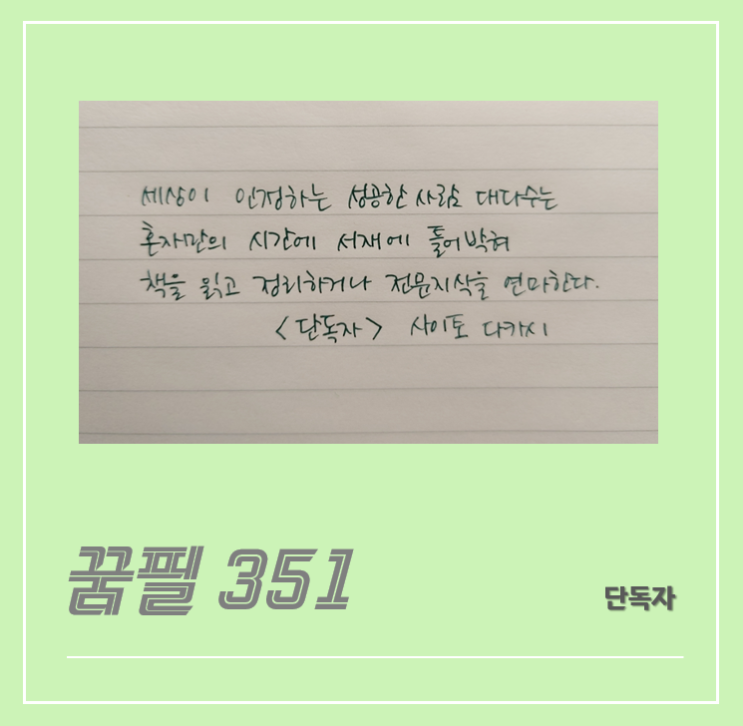 세상이 인정하는 성공한 사람 대다수는
혼자만의 시간에 서재에 틀어박혀
책을 읽고 정리하거나 전문지식을 연마한다.
<단독자> 사이토 다카시
꿈필 351
단독자